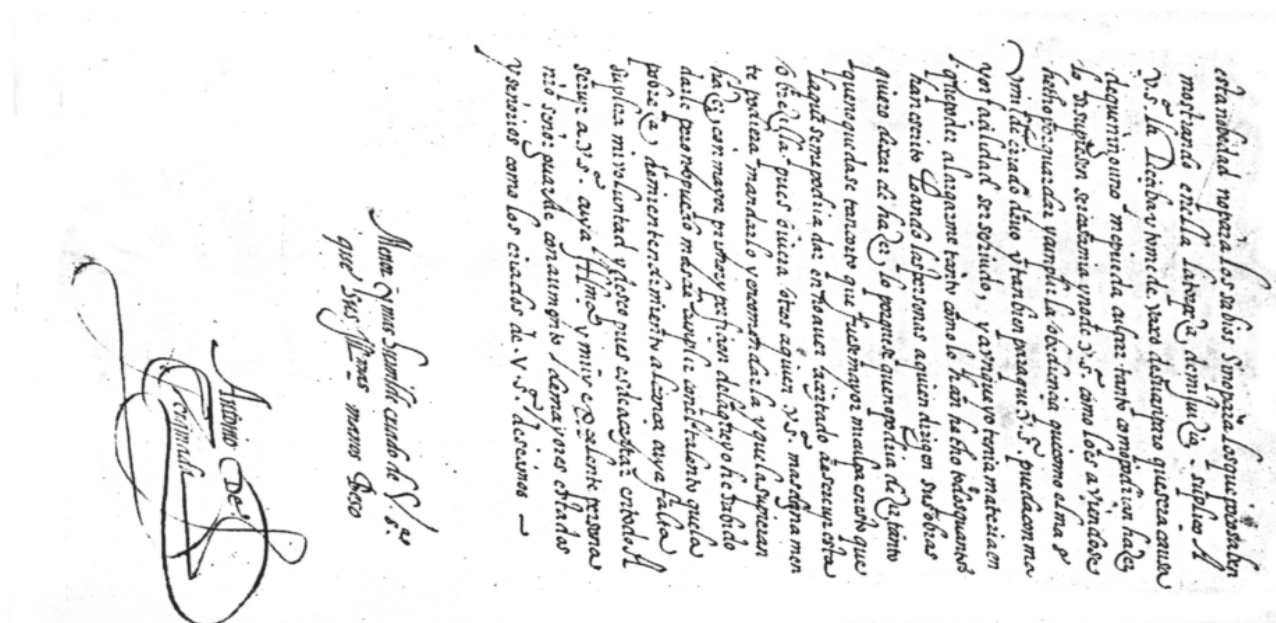 esta nobedad no para los sabios Sino para los que poco saben
mostrando en ella la torpeza de mi juizio. suplico A
v. S.ª la Reciba y tome de vaxo de su anparo que sera causa
de que ninguno me pueda culpar tanto como podrian hazer
lo si supiesen ser cosa mia y no de v. S.ª como lo es a viendose
hecho por guardar y cunplir la obediencia que como el mas
vmilde criado devo y tan bien para que v. S.ª pueda con ma
yor facilidad ser servido, y avnque yo tenia materia en
que poder alargarme tanto como lo han hecho todos quantos
han escrito loando las personas a quien dirigen sus obras
quiero dexar de hazer lo porque se que no podria dezir tanto
que no quedase tan corto que fuese mayor mi culpa en esto que
la que se me podria dar en no aver acertado a escrevir esta
obrezilla pues oviera otros a quien v. S.ª mas dignamen
te pudiera mandarlo y encomendarla y que la supieran
hazer con mayor primor y perficion de la que yo he sabido
darle pero no puedo mas ni cunplir con el talento que la
pobreza de mi entendimiento alcança cuya falta
supla mi voluntad y deseo pues es de acertar en todo A
servir a v. S.ª cuya Ill.ma y muy excelente persona
n̄ro señor guarde con aumento de mayores estados
y señorios como los criados de .V. S.ª deseamos
Menor y mas humilde criado de V. S.ª
que sus Ill.mas manos Beso
Antonio De